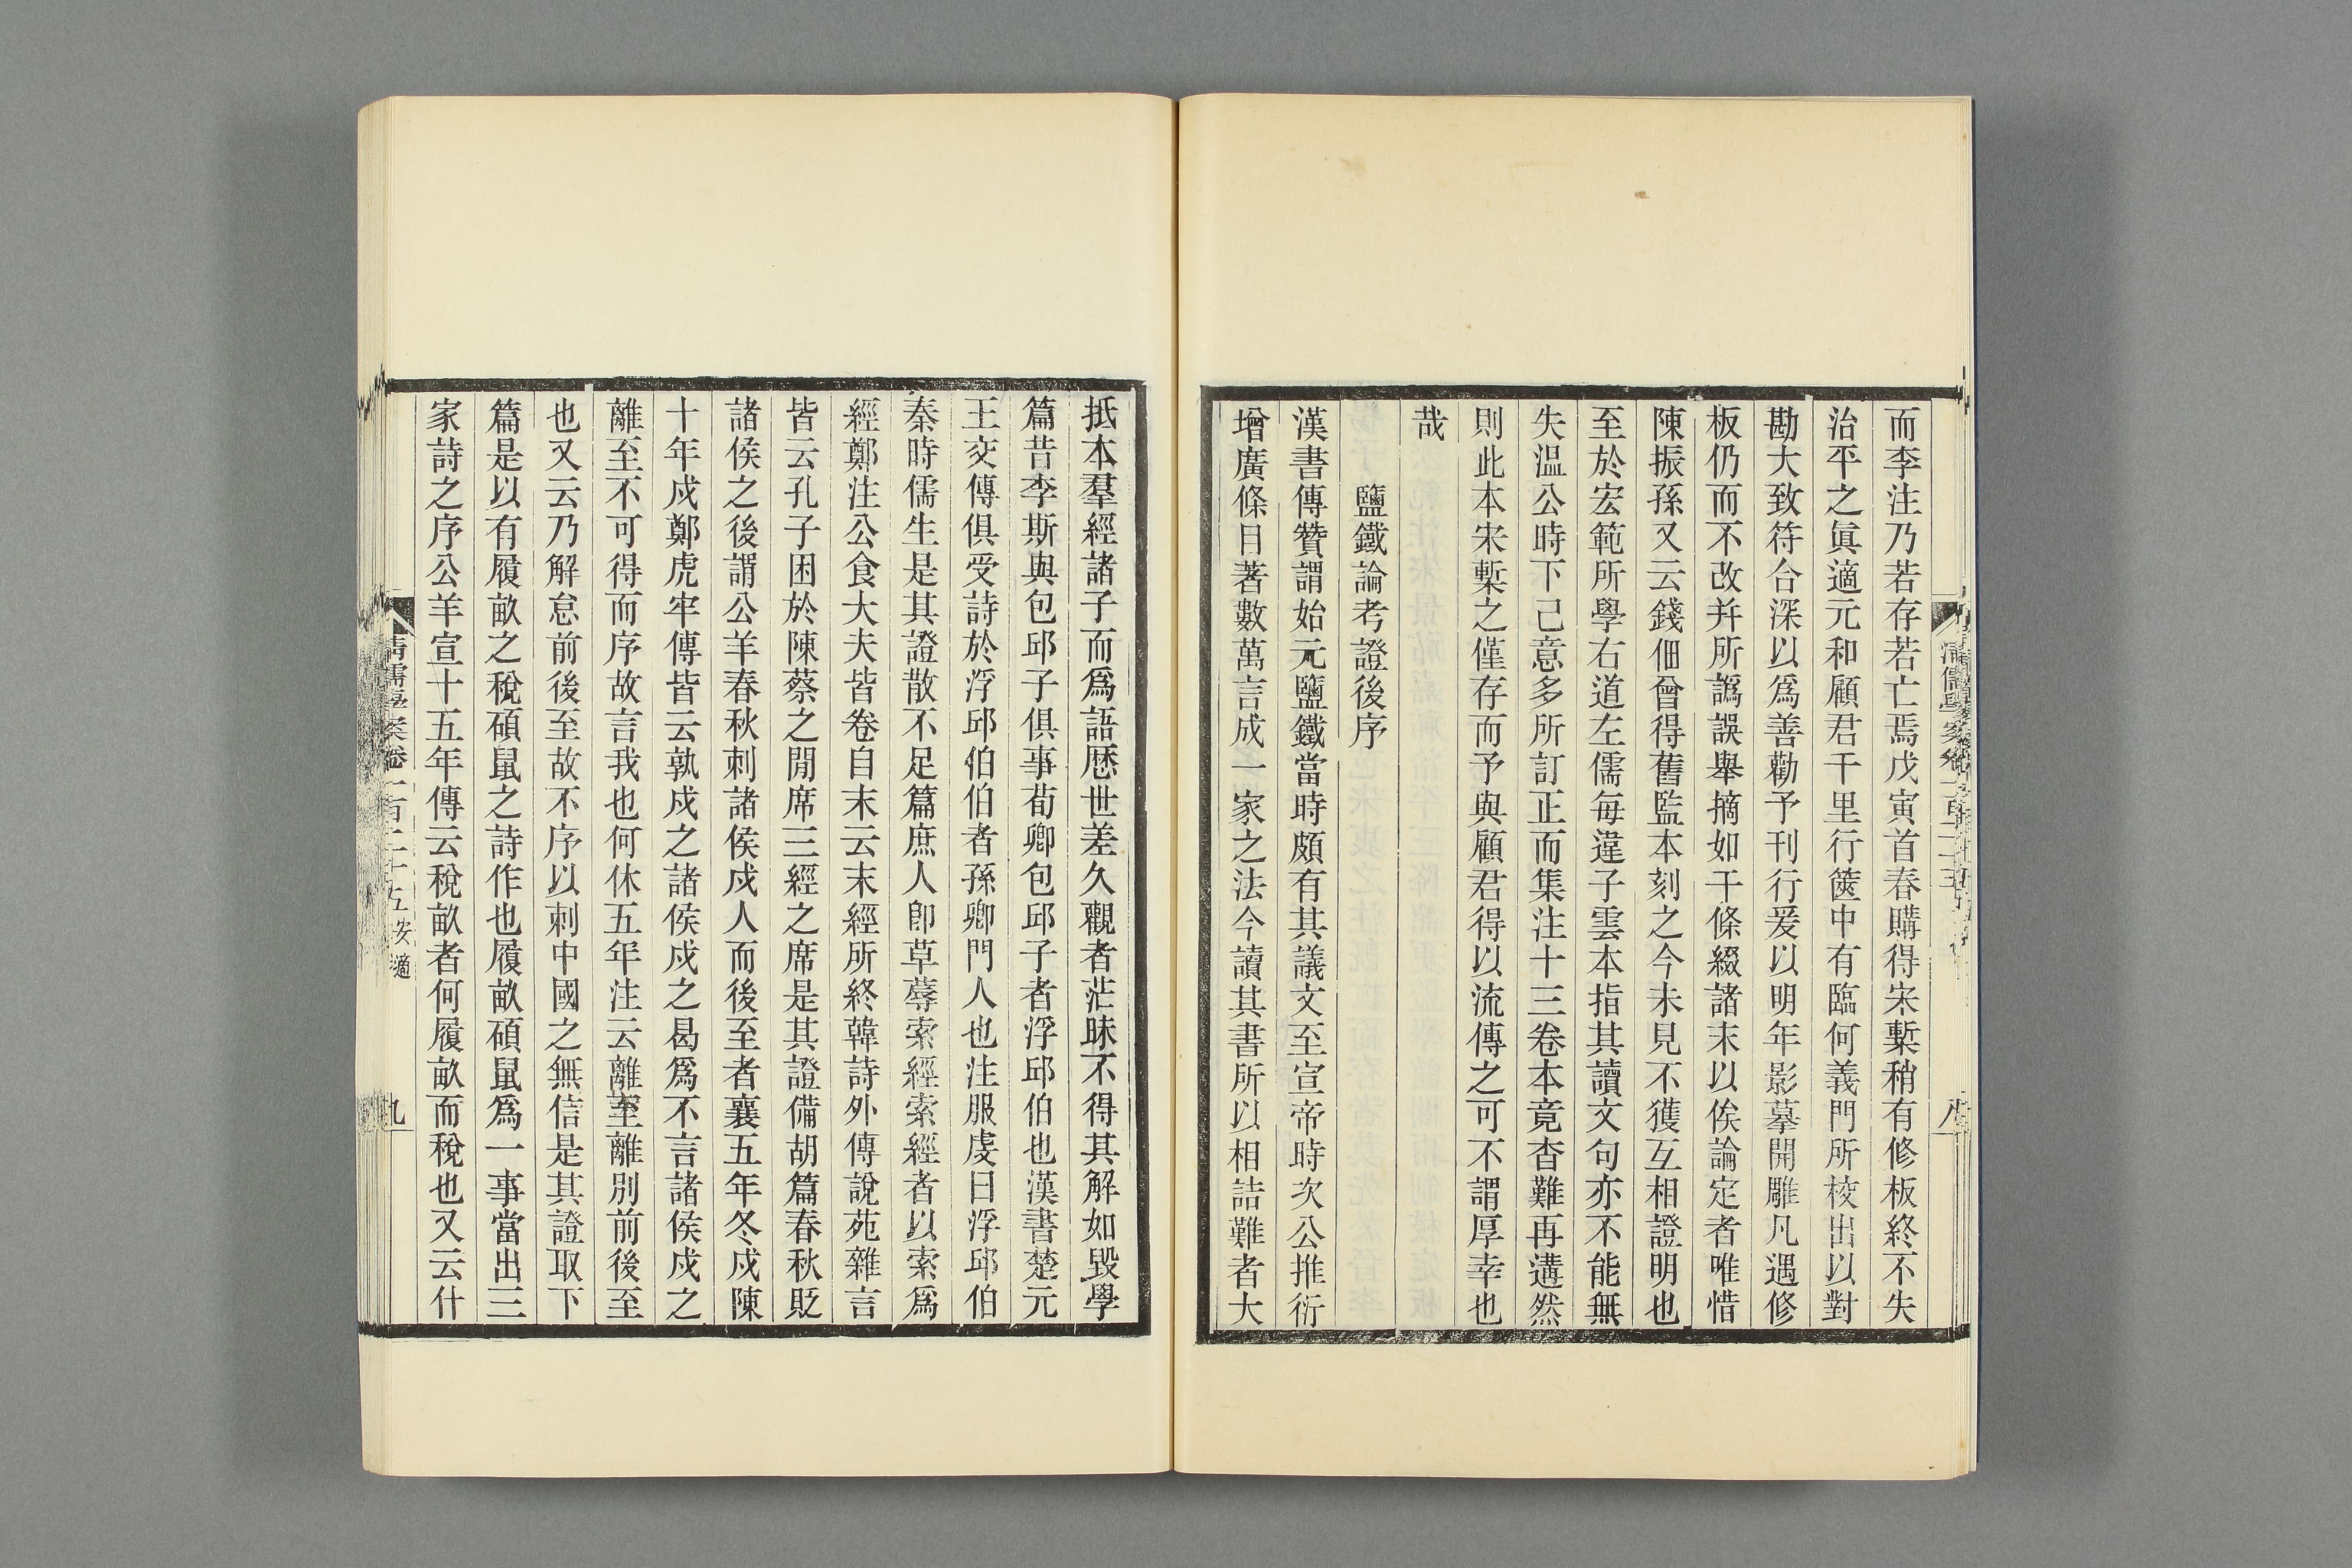 而李注乃若存若亡焉戊寅首春購得宋槧稍有修板終不失
治平之眞適元和顧君千里行篋中有臨何義門所校出以對
勘大致符合深以爲善勸予刊行爰以明年影摹開雕凡遇修
板仍而不改幷所譌誤舉摘如干條綴諸末以俟論定者唯惜
陳振孫又云錢佃曾得舊監本刻之今未見不獲互相證明也
至於宏範所學右道左儒每違子雲本指其讀文句亦不能無
失温公時下己意多所訂正而集注十三卷本竟杳難再遘然
則此本宋槧之僅存而予與顧君得以流傳之可不謂厚幸也
哉
鹽鐵論考證後序
漢書傳贊謂始元鹽鐵當時頗有其議文至宣帝時次公推衍
增廣條目著數萬言成一家之法今讀其書所以相詰難者大
抵本羣經諸子而爲語歷世差久觀者茫昧不得其解如毀學
篇昔李斯與包邱子俱事荀卿包邱子者浮邱伯也漢書楚元
王交傳俱受詩於浮邱伯伯者孫卿門人也注服虔曰浮邱伯
秦時儒生是其證散不足篇庶人卽草蓐索經索經者以索爲
經鄭注公食大夫皆卷自末云末經所終韓詩外傳說苑雜言
皆云孔子困於陳蔡之閒席三經之席是其證備胡篇春秋貶
諸侯之後謂公羊春秋刺諸侯戍人而後至者襄五年冬戍陳
十年戍鄭虎牢傳皆云孰戍之諸侯戍之曷爲不言諸侯戍之
離至不可得而序故言我也何休五年注云離至離別前後至
也又云乃解怠前後至故不序以刺中國之無信是其證取下
篇是以有履畝之稅碩鼠之詩作也履畝碩鼠爲一事當出三
家詩之序公羊宣十五年傳云稅畝者何履畝而稅也又云什
清儒學案卷一百二十五 安 適
九